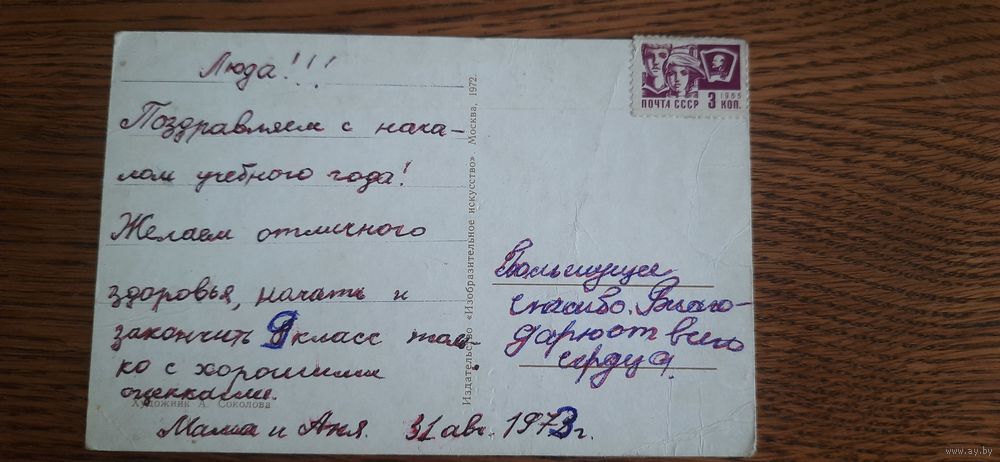 Люда!!!
Поздравляем с нача-
лом учебного года!
Желаем отличного
здоровья, начать и
закончить 9 класс толь-
ко с хорошими
оценками.
Художник А. Соколова
Мама и Аня. 31 авг. 1973 г.
Издательство «Изобразительное искусство». Москва, 1972.
ПОЧТА СССР 3 КОП.
1966
Большущее
спасибо. Благо-
дарю от всего
сердца.
www.ay.by